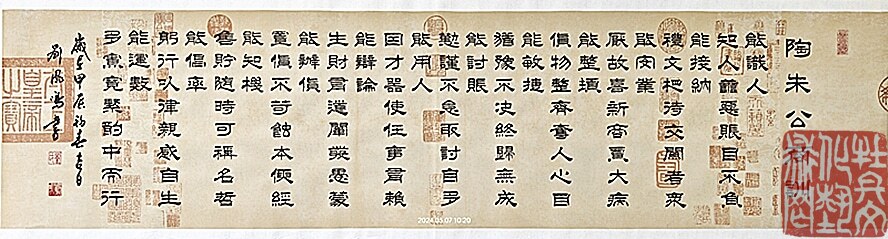 陶朱公商訓
能識人
知人善惡賬目不負
能接納
禮文相待交關者衆
能安業
厭故喜新商賈大病
能整頓
貨物整齊奪人心目
能敏捷
猶豫不決終歸無成
能討賬
勤謹不怠取討自多
能用人
因才器使任事有賴
能辯論
生財有道闡發愚蒙
能辦貨
置貨不苛蝕本便經
能知機
售貯隨時可稱名哲
能倡率
躬行以律親感自生
能運數
多寡寬緊酌中而行
歲在甲辰初春吉日
書
皇帝之寶
2024.03.07 10:20